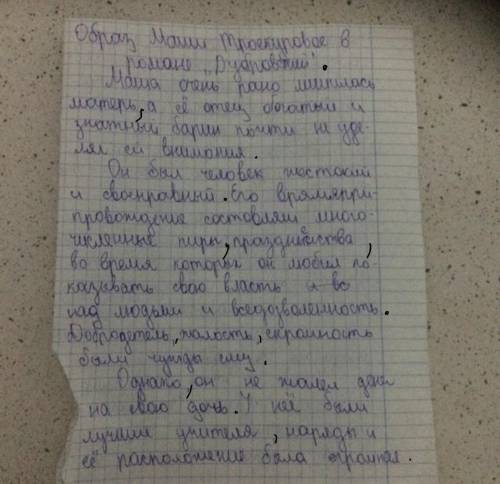 Образ Маши Троекуровой в
романе „Дубровский".
Маша очень рано лишилась
матери, а её отец богатый и
знатный барин почти не уде-
лял ей внимания.
Он был человек жестокий
и своенравный. Его времяпри-
провождение составляли много-
численные пиры, празднества,
во время которых он любил по-
казывать свою власть
над людьми и вседозволенность.
Добродетель, жалость, скромность
были чужды ему.
Однако, он не жалел
на свою дочь. У неё были
лучшие учителя, наряды и
её расположение была огромная.